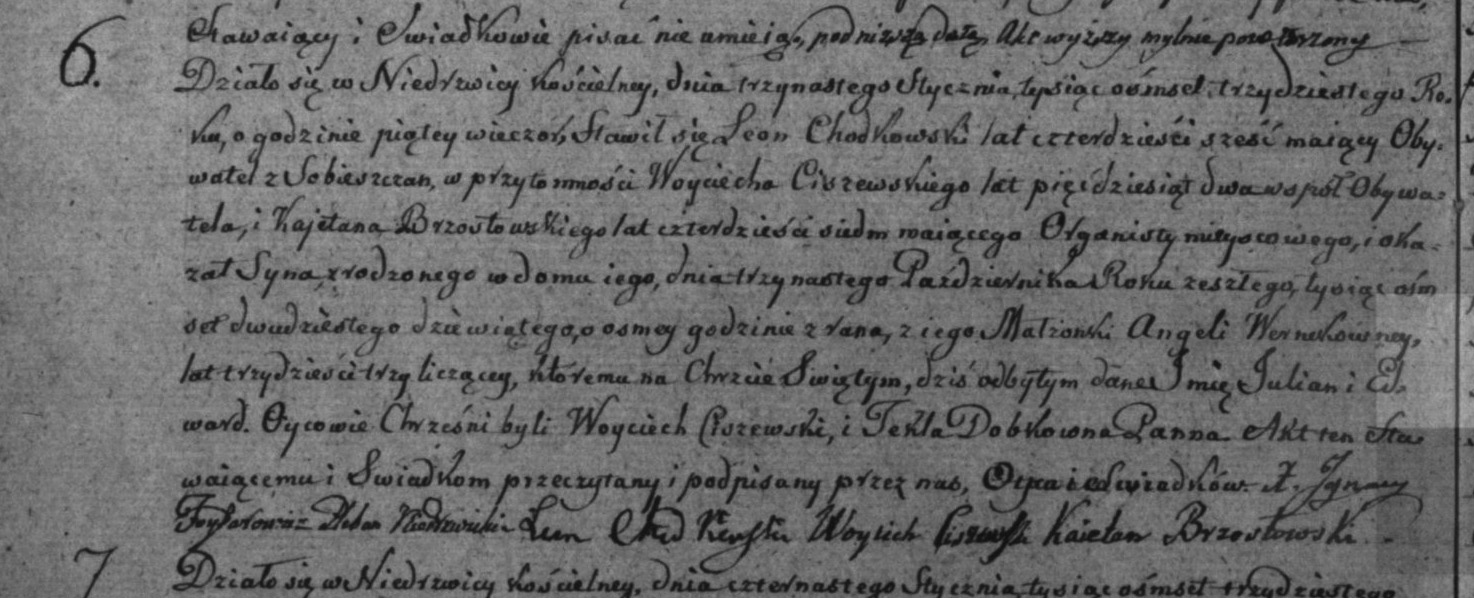 Stawaiący i Swiadkowie pisać nie umieią, pod niższą datą Akt wyższy mylnie powtorzony
6.
Działo się w Niedrzwicy kościelney, dnia trzynastego Stycznia, tysiąc ośmset trzydziestego Ro-
ku, o godzinie piątey wieczor, Stawił się Leon Chodkowski lat czterdzieści sześć maiący Oby-
watel z Sobieszczan, w przytomności Woyciecha Ciszewskiego lat pięćdziesiąt dwa współ Obywa-
tela, i Kajetana Brzostowskiego lat czterdzieści siedm maiącego Organisty mieyscowego, i oka-
zał Syna zrodzonego w domu iego, dnia trzynastego Października Roku zeszłego, tysiąc ośm
set dwudziestego dziewiątego, o osmey godzinie z rana, z iego Małzonki Angeli Wernekowney,
lat trzydzieści trzy liczącey, któremu na Chrzcie Swiętym, dziś odbytym dane Imię Julian i Ed-
ward. Oycowie Chrześni byli Woyciech Ciszewski, i Tekla Dobkowna Panna Akt ten Sta-
waiącemu i Swiadkom przeczytany i podpisany przez nas, Oyca i Swiadków. X. Ignacy
Pleban Niedrzwicki Leon Chodkowski Woyciech Ciszewski Kaietan Brzostowski
7
Działo się w Niedrzwicy kościelney, dnia czternastego Stycznia, tysiąc ośmset trzydziestego